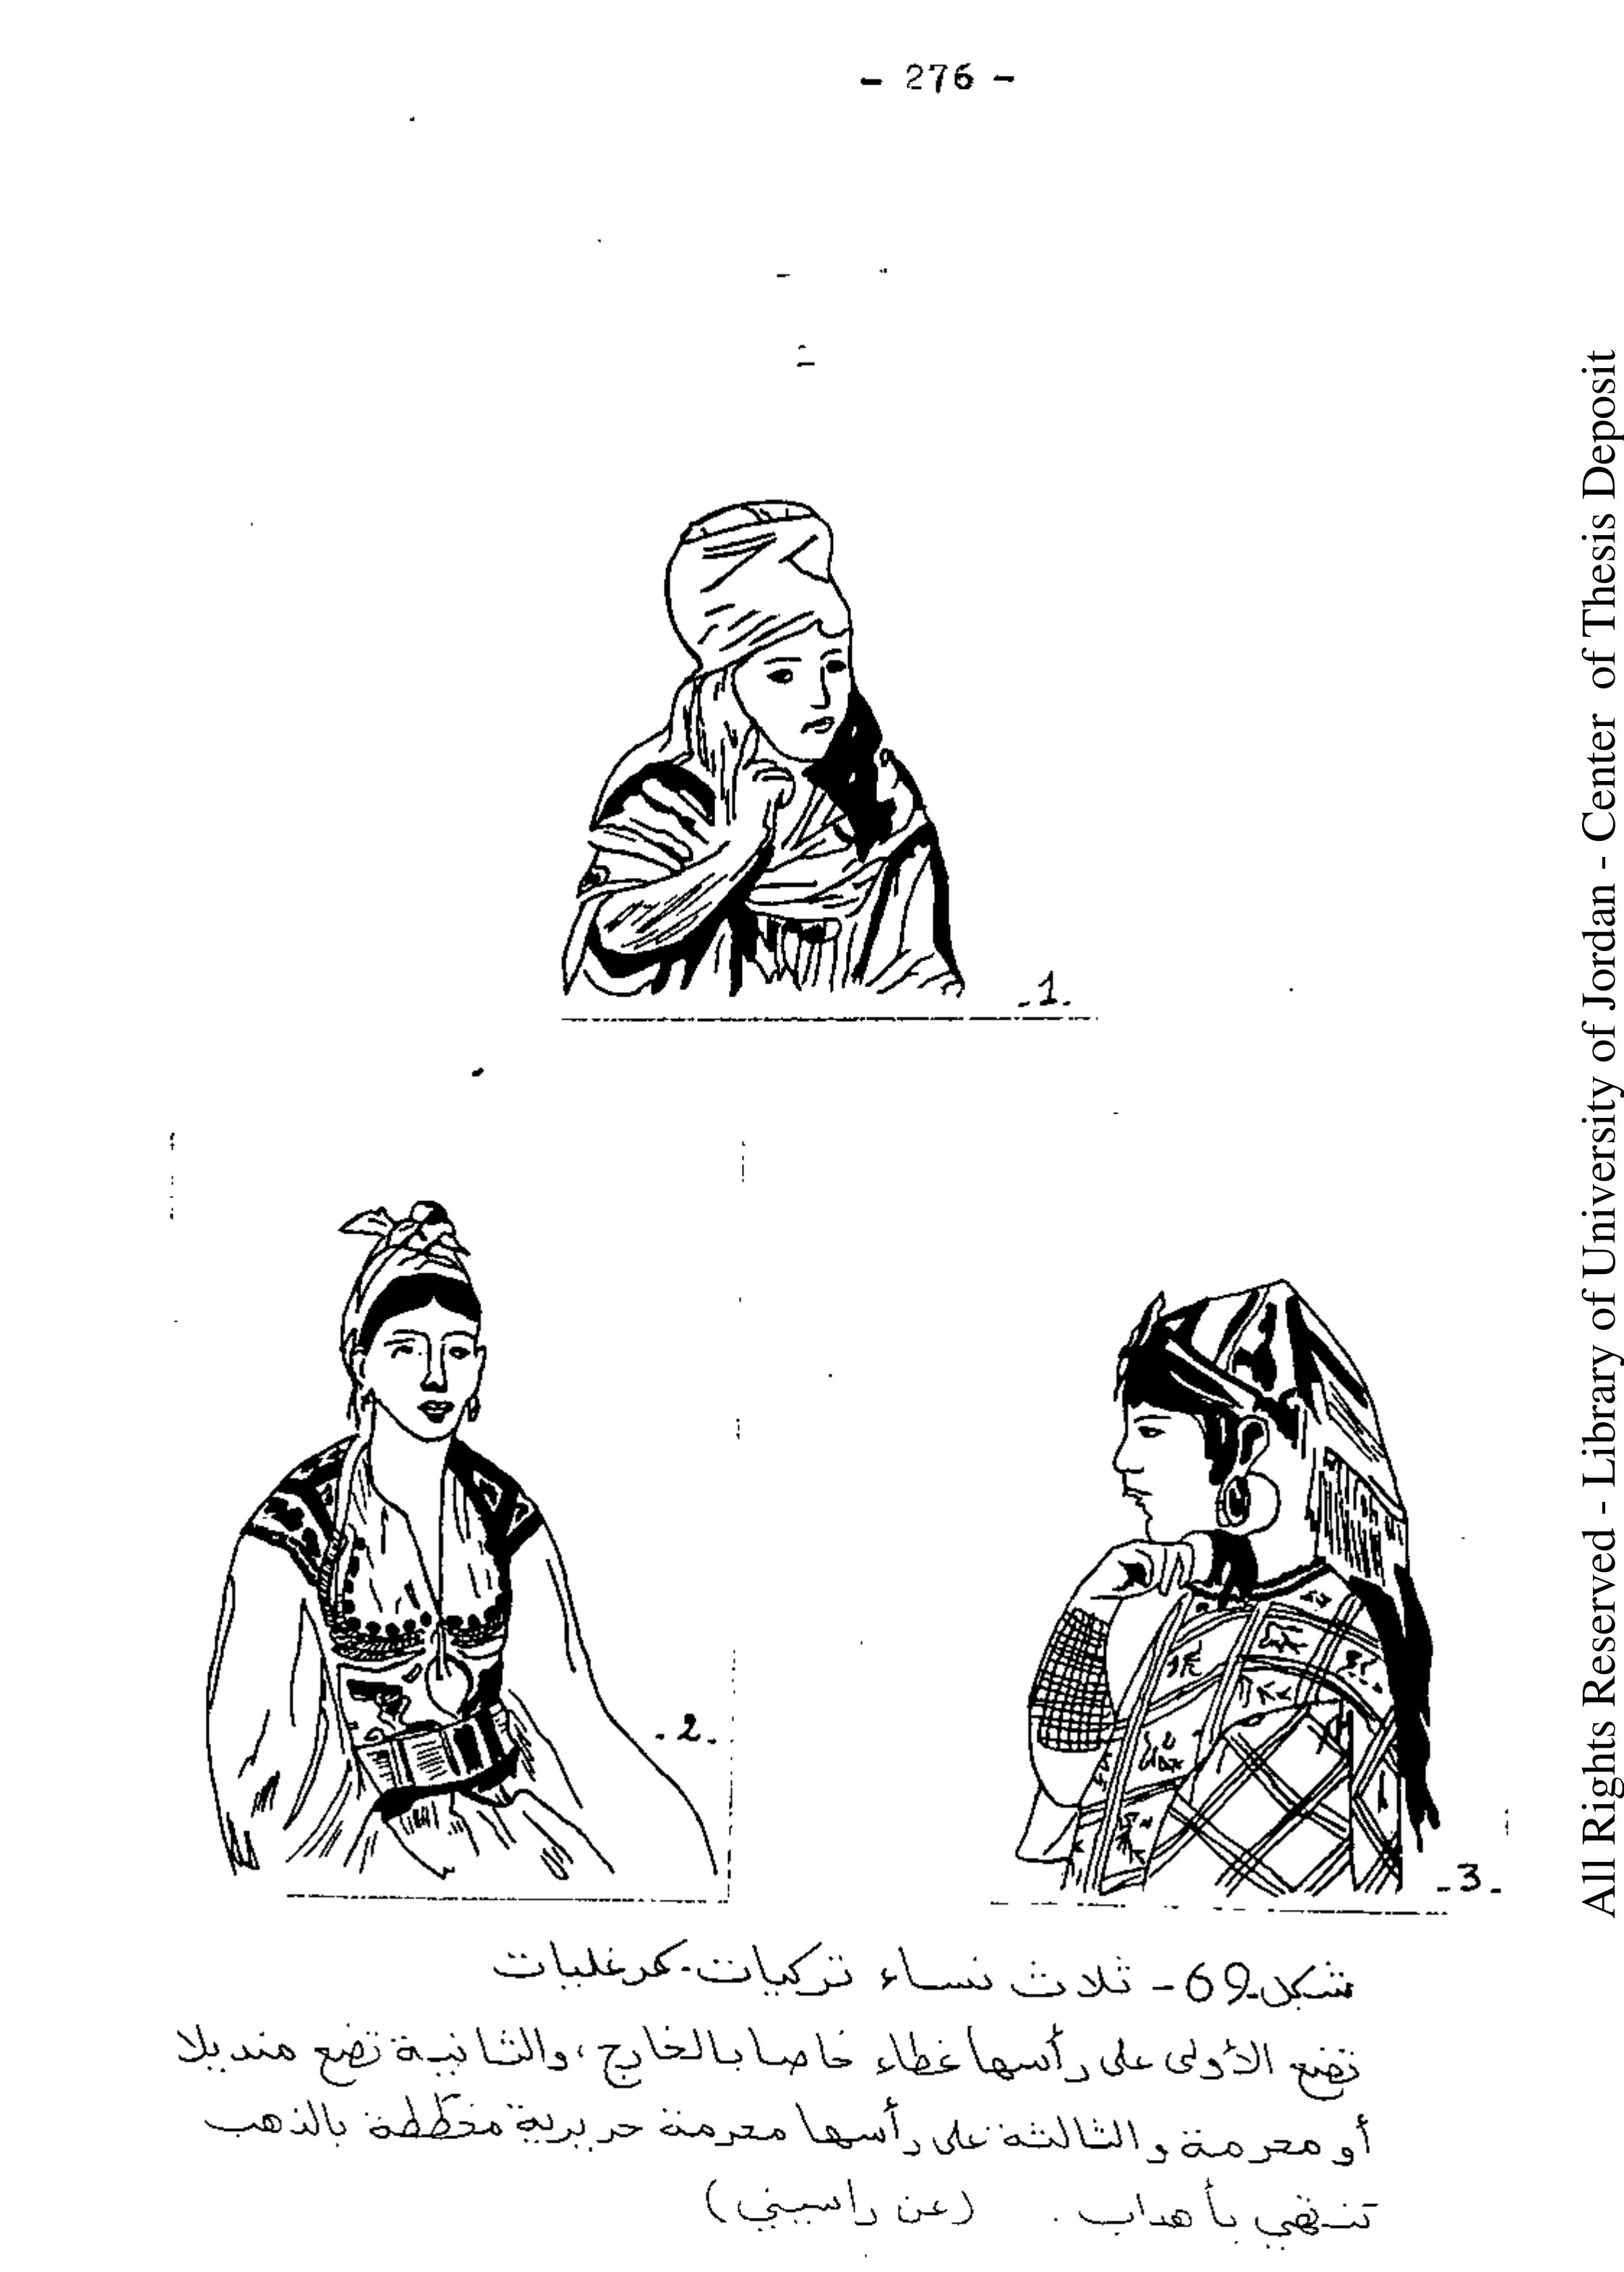 - 276 -
-1-
-2-
-3-
شكل-69- ثلاث نساء تركيات-كرغليات
تضع الأولى على رأسها غطاء خاصا بالخارج، والثانية تضع منديلا
أو محرمة والثالثة على رأسها محرمة حريرية مخططة بالذهب
تنتهي بأهداب . (عن راسيني)
All Rights Reserved - Library of University of Jordan - Center of Thesis Deposit